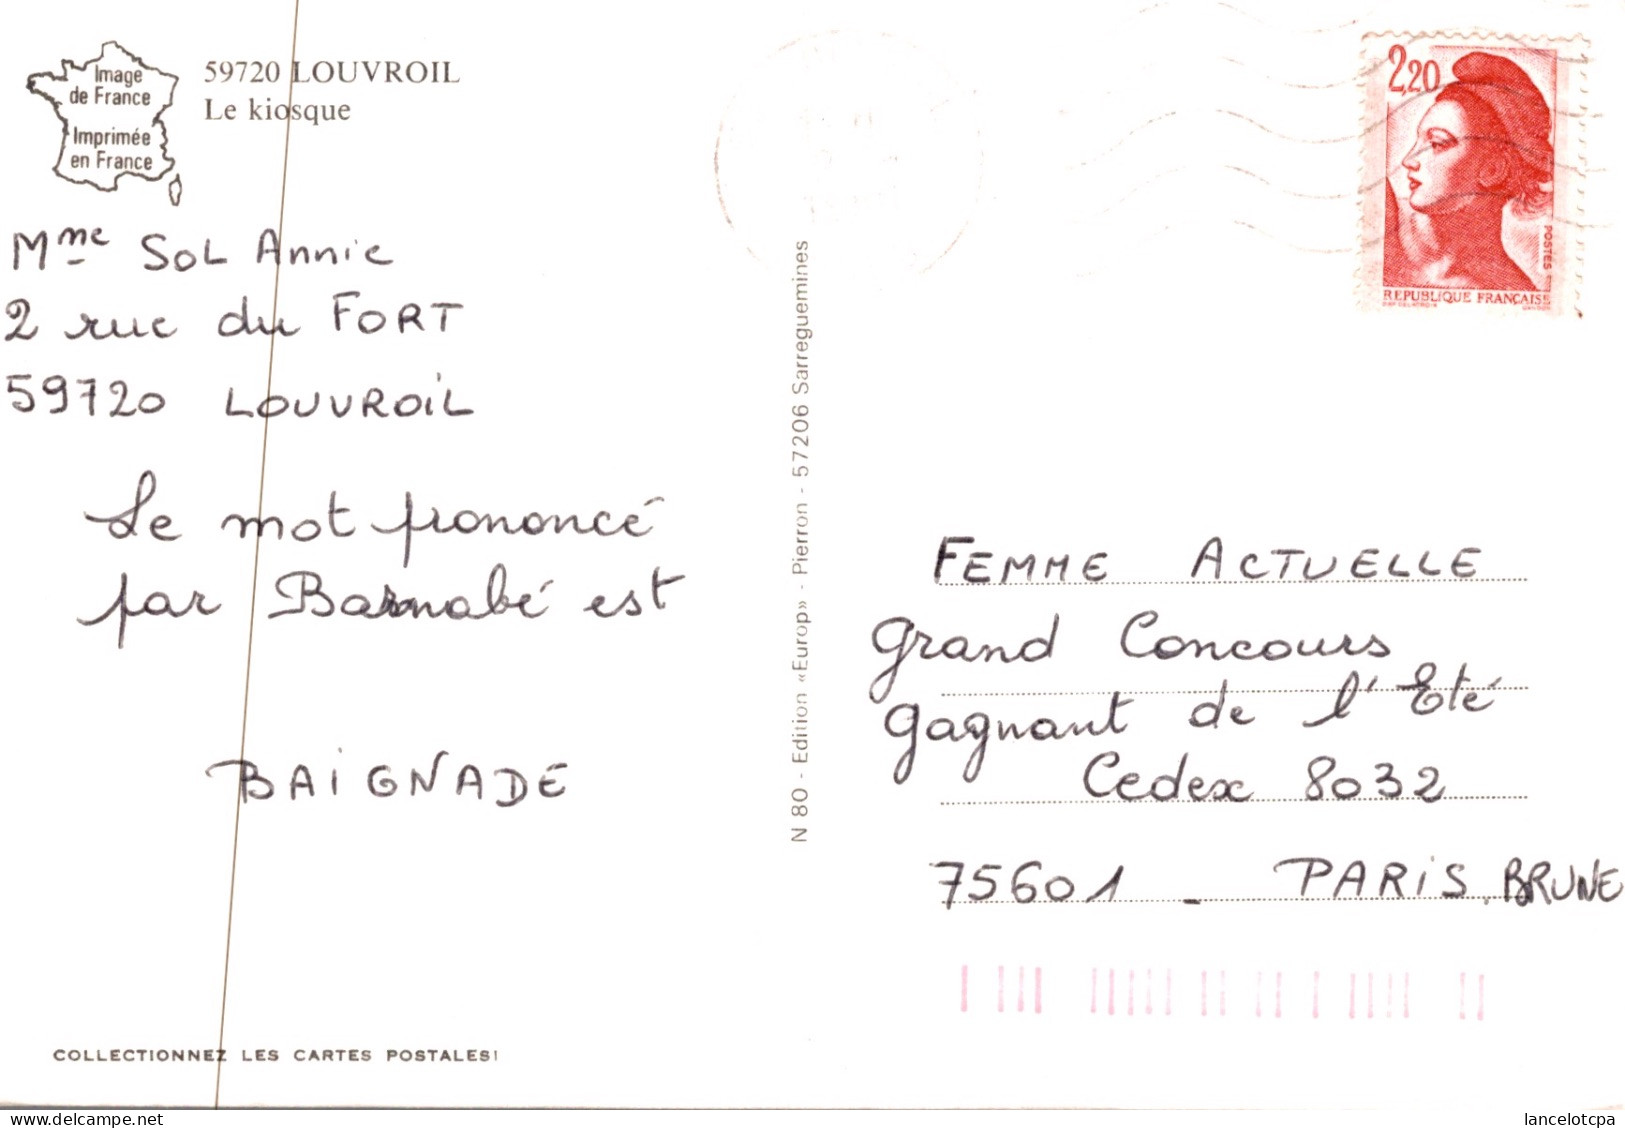 Image
de France
Imprimée
en France
59720 LOUVROIL
Le kiosque
Mme SOL Annie
2 rue du FORT
59720 LOUVROIL
Le mot prononcé
par Barnabé est
BAIGNADE
COLLECTIONNEZ LES CARTES POSTALES!
N 80 - Edition «Europ» - Pierron - 57206 Sarreguemines
2,20
POSTES
REPUBLIQUE FRANÇAISE
FEMME ACTUELLE
Grand Concours
gagnant de l'Eté
Cedex 8032
75601 - PARIS. BRUNE
delcampe.net
lancelotcpa